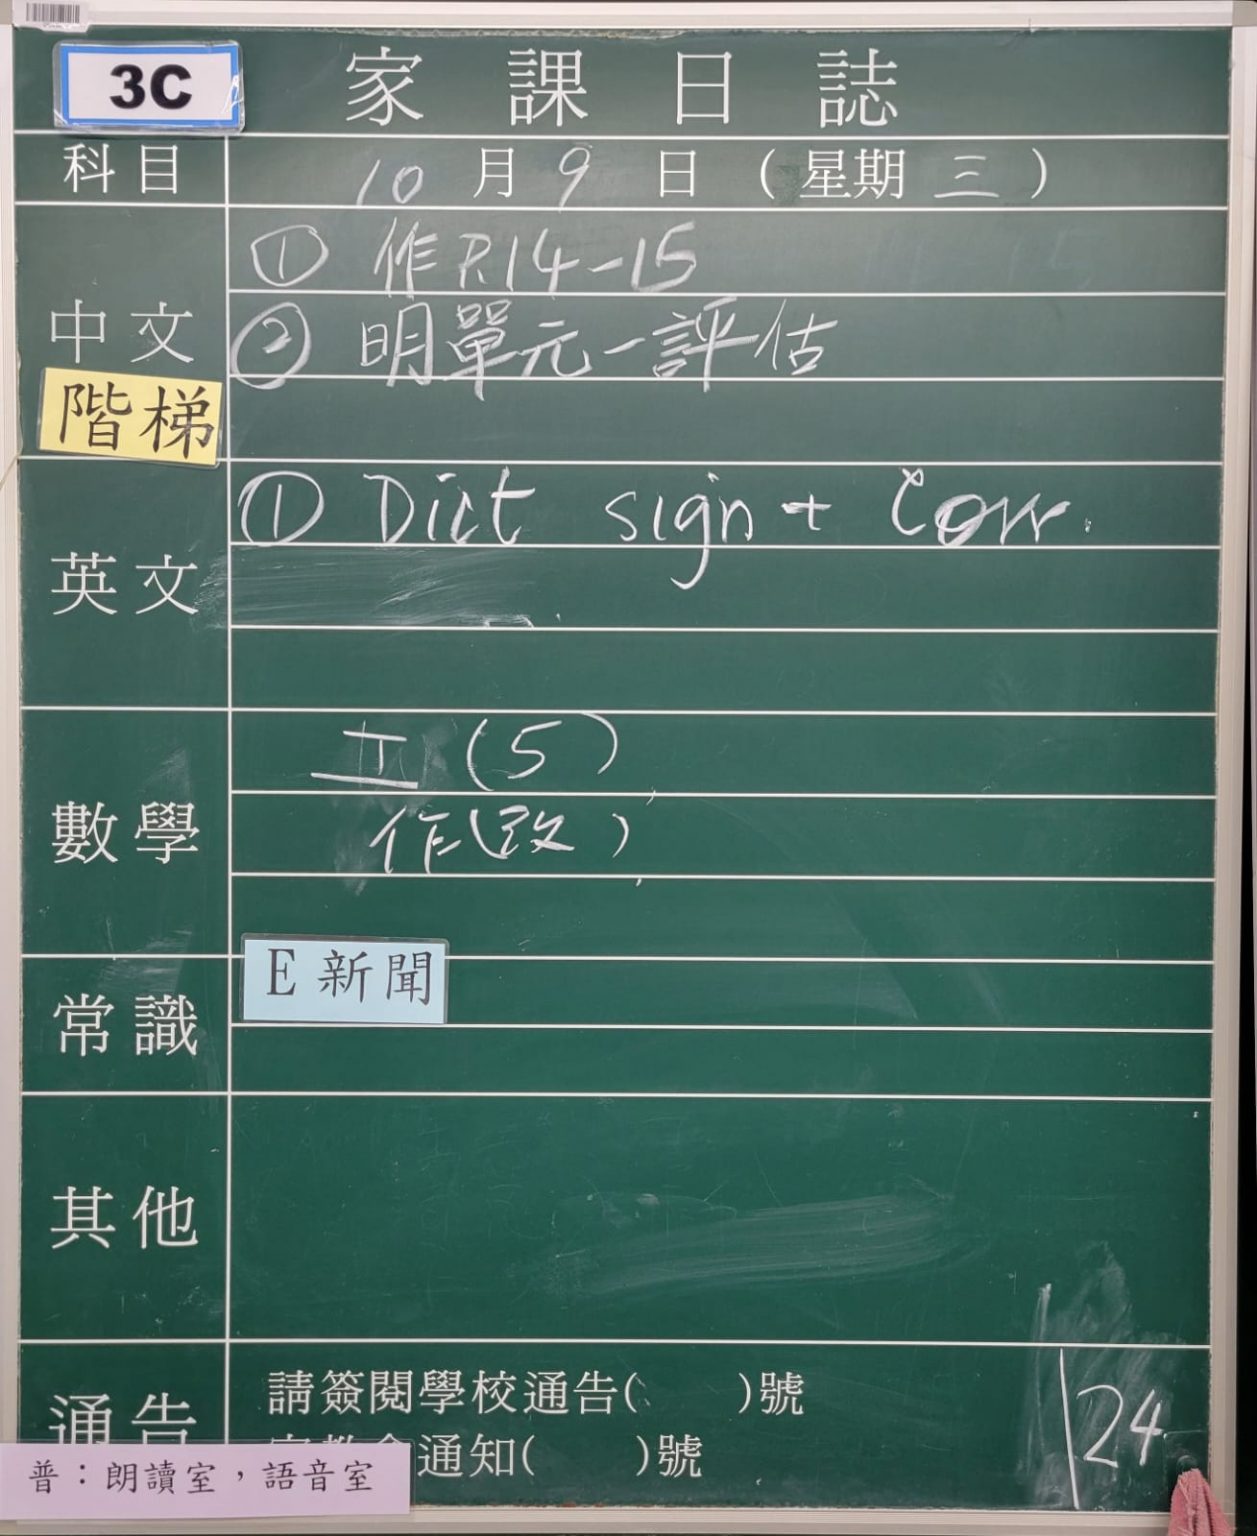 3C
家課日誌
科目 10月9日(星期三)
中文
① 作P.14-15
② 明單元一評估
階梯
英文
① Dict sign + Corr.
數學
(5)
作(改)
常識
E 新聞
其他
通告
請簽閱學校通告( )號
通知( )號
24
普：朗讀室，語音室